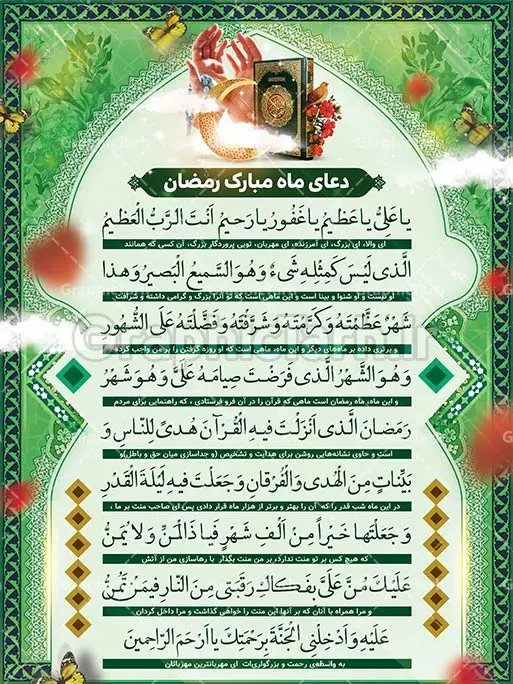 دعای ماه مبارک رمضان
یا عَلیُّ یا عَظیمُ یا غَفُورُ یا رَحیمُ اَنتَ الرَّبُّ العَظیمُ
ای والا، ای بزرگ، ای آمرزنده، ای مهربان، تویی پروردگار بزرگ، آن کسی که همانند
الَّذی لَیسَ کَمِثلِهِ شَیءٌ وَ هُوَ السَّمیعُ الْبَصیرُ وَ هذا
او نیست و او شنوا و بینا است و این ماهی است که تو آنرا بزرگ و گرامی داشته و شرافت
شَهْرٌ عَظَّمْتَهُ وَ کَرَّمْتَهُ وَ شَرَّفْتَهُ وَ فَضَّلْتَهُ عَلَی الشُّهُورِ
و برتری داده بر ماه‌های دیگر و این ماه، ماهی است که او روزه گرفتن را بر من واجب کرده
وَ هُوَ الشَّهْرُ الَّذی فَرَضْتَ صِیامَهُ عَلَیَّ وَ هُوَ شَهْرُ
و این ماه، ماه رمضان است ماهی که قرآن را در آن فرو فرستادی ، که راهنمایی برای مردم
رَمَضانَ الَّذی اَنْزَلْتَ فیهِ الْقُرْآنَ هُدیً لِلنّاسِ وَ
است و حاوی نشانه‌هایی روشن برای هدایت و تشخیص (و جداسازی میان حق و باطل)و
بَیِّناتٍ مِنَ الْهُدی وَ الْفُرْقانِ وَ جَعَلْتَ فیهِ لَیْلَةَ الْقَدْرِ
در این ماه شب قدر را که آن را بهتر و برتر از هزار ماه قرار دادی پس ای صاحب منت بر ما ،
وَ جَعَلْتَها خَیْراً مِنْ اَلْفِ شَهْرٍ فَیا ذَا الْمَنِّ وَ لا یُمَنُّ
که هیچ کس بر تو منت ندارد، بر من منت بگذار با رهاسازی من از آتش
عَلَیْکَ مُنَّ عَلَیَّ بِفَکاکِ رَقَبَتی مِنَ النّارِ فیمَنْ تَمُنُّ
و مرا همراه با آنان که بر آنها این منت را خواهی گذاشت و مرا داخل گردان
عَلَیْهِ وَ اَدْخِلْنِی الْجَنَّةَ بِرَحْمَتِکَ یا اَرْحَمَ الرّاحِمینَ
به واسطه‌ی رحمت و بزرگواری‌ات ای مهربانترین مهربانان